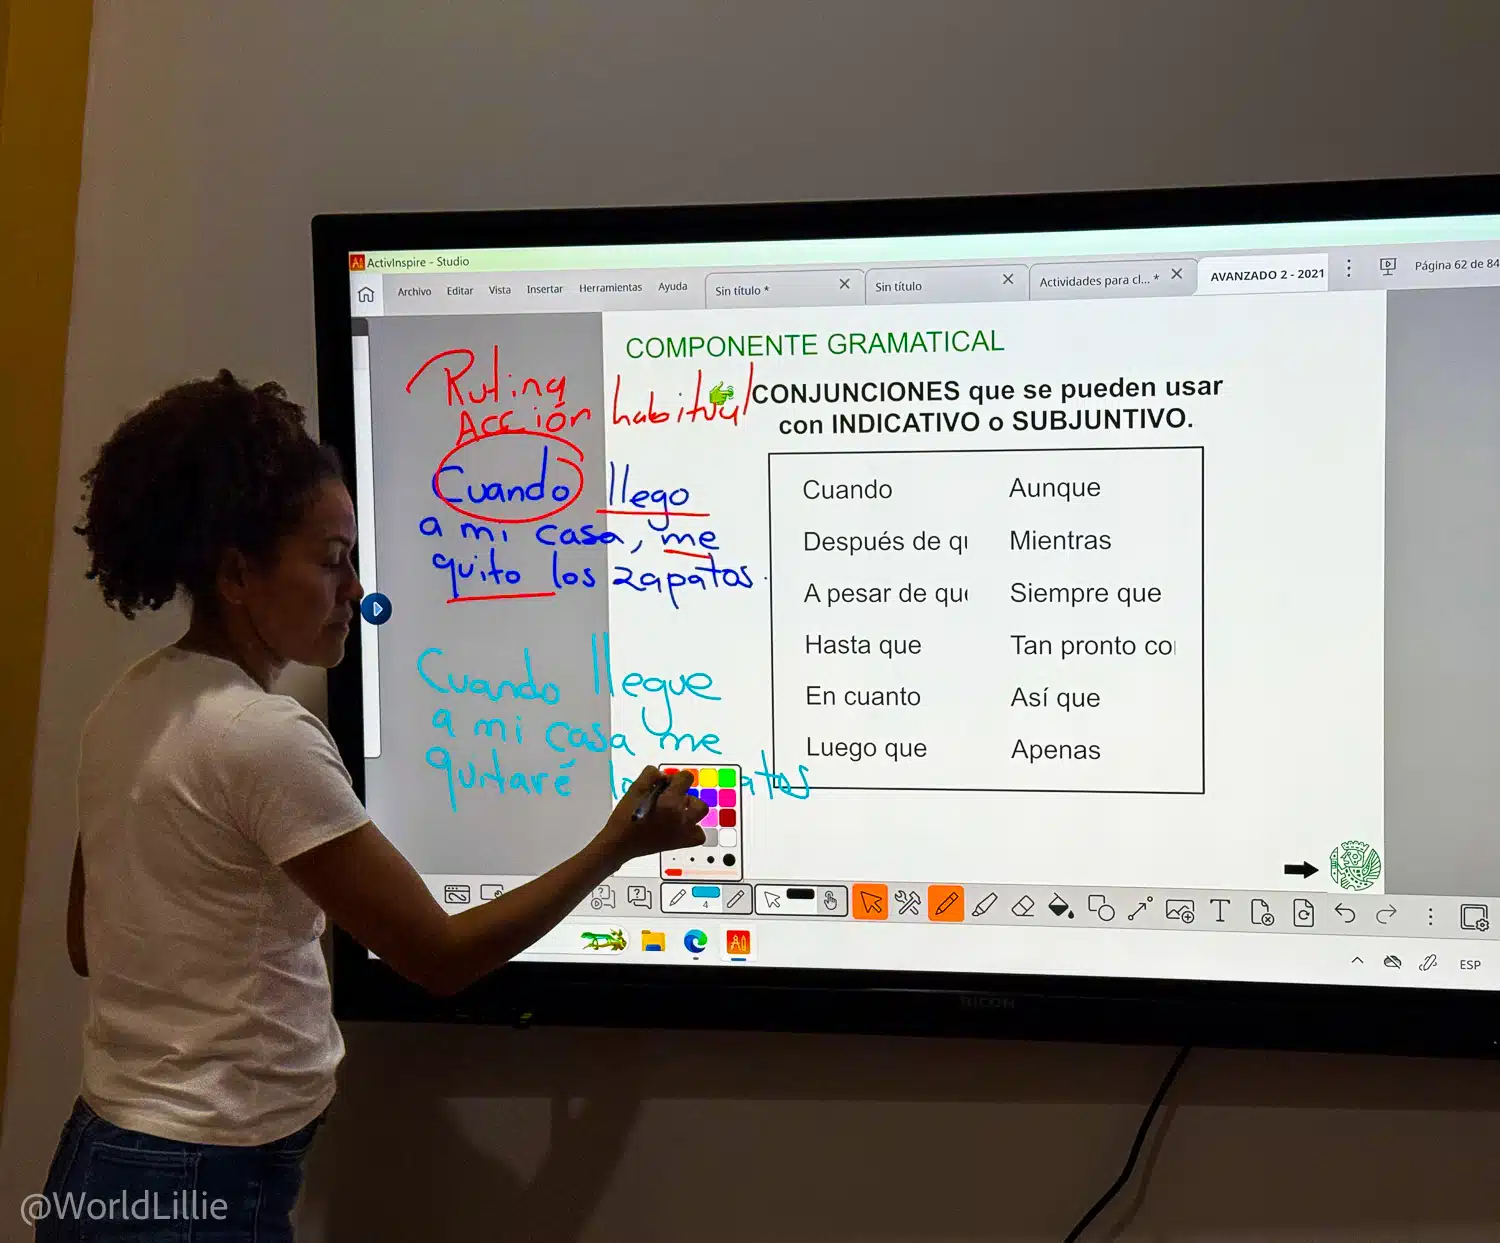 ActivInspire - Studio
Archivo Editar Vista Insertar Herramientas Ayuda
Sin título *
Sin título
Actividades para cl... *
AVANZADO 2 - 2021
Página 62 de 84
COMPONENTE GRAMATICAL
CONJUNCIONES que se pueden usar
con INDICATIVO o SUBJUNTIVO.
Rutina
Acción habitual
Cuando llego
a mi casa, me
quito los zapatos.
Cuando llegue
a mi casa me
quitaré
Cuando Aunque
Después de Mientras
A pesar de Siempre que
Hasta que Tan pronto co
En cuanto Así que
Luego que Apenas
4
T
ESP
RICOH
@WorldLillie